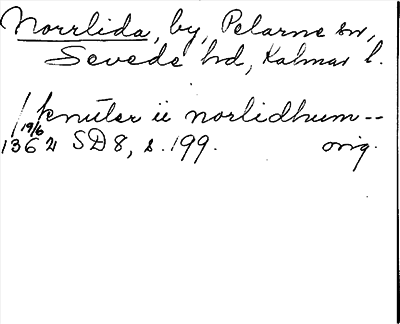 Norrlida, by, Pelarne sn,
Sevede hd, Kalmar l.
/ knuter ii norlidhum --
19/6
1362 SD 8, s. 199. orig.